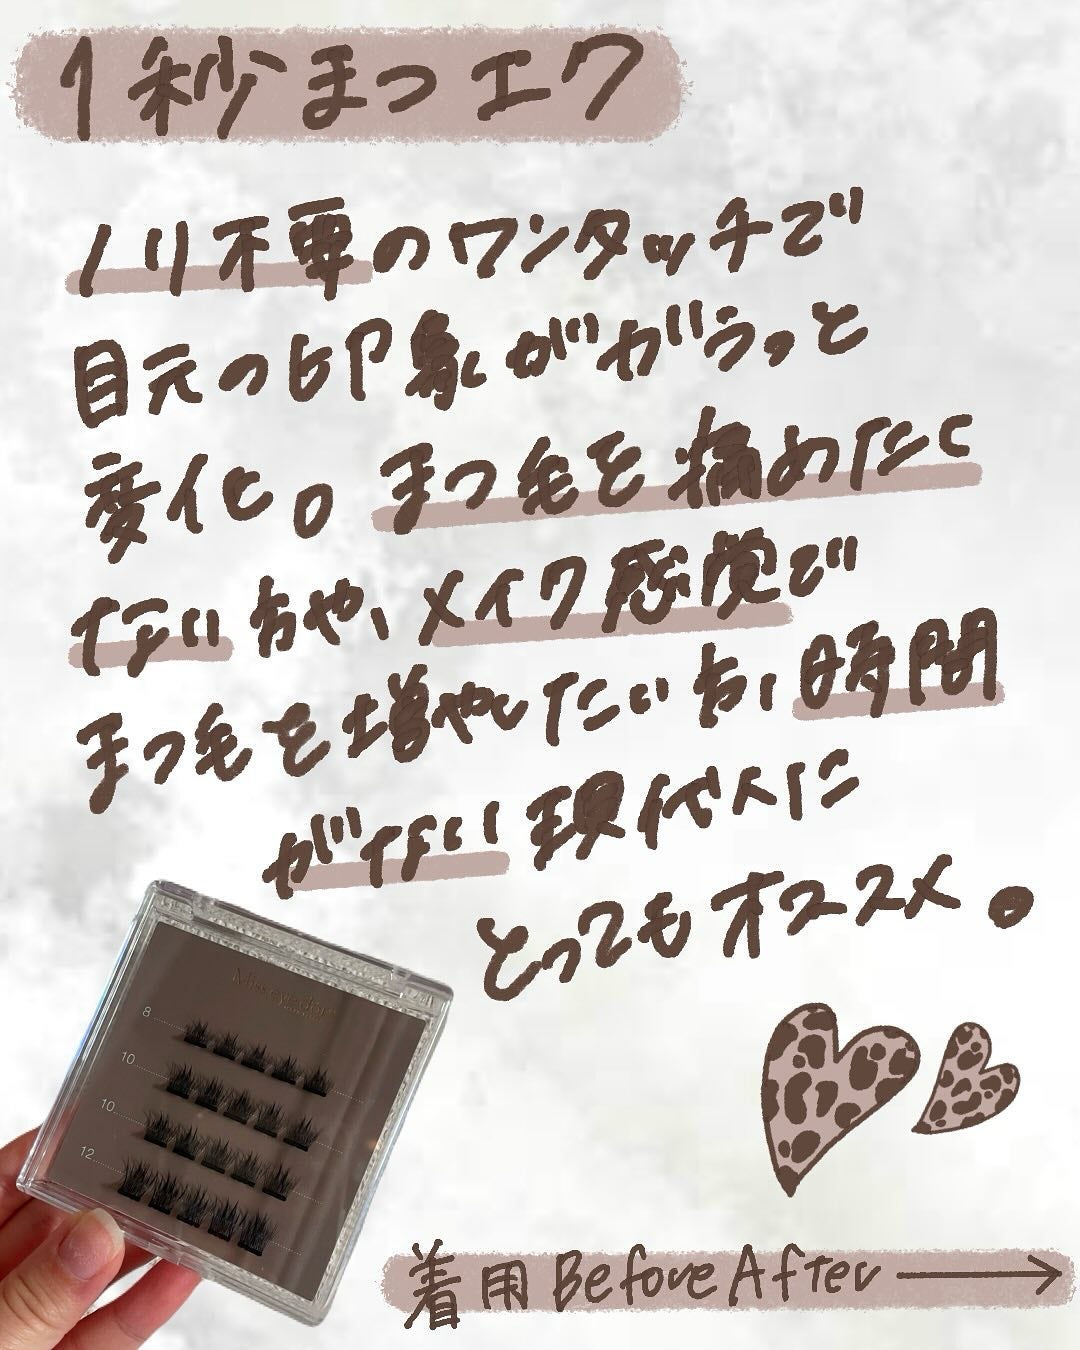 1秒まつエク
ノリ不要のワンタッチで
目元の印象ががらっと
変化。まつ毛を痛めたく
ない方や、メイク感覚で
まつ毛を増やしたい方、時間
がない現代人に
とってもオススメ。
Miss eye d'or
8
10
10
12
着用 Before After